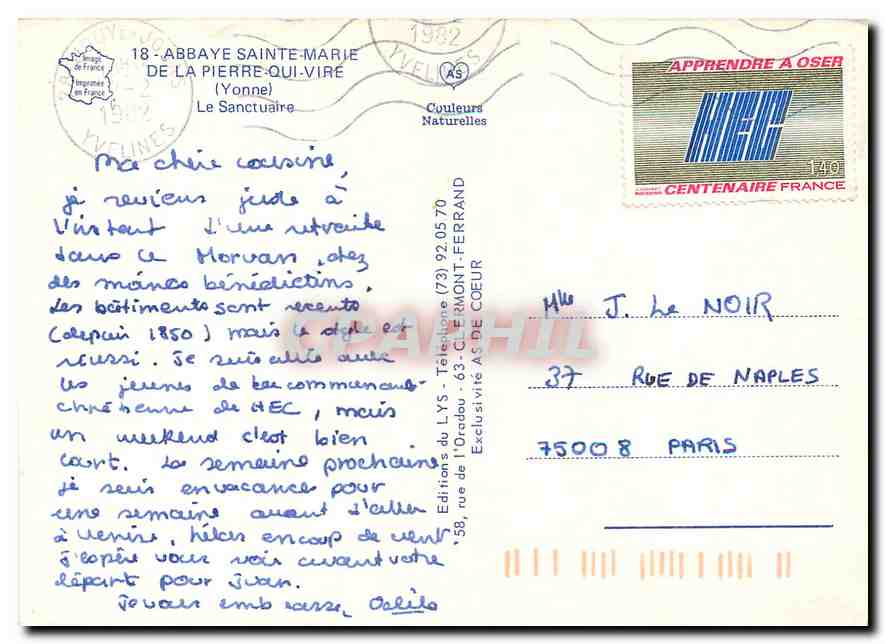 18 - ABBAYE SAINTE-MARIE
DE LA PIERRE-QUI-VIRE
(Yonne)
Le Sanctuaire
Image
de France
Imprimée
en France
AS
Couleurs
Naturelles
1982
YVELINES
1982
YVELINES
APPRENDRE A OSER
HEC
1,40
CENTENAIRE FRANCE
Ma chère cousine,
je reviens juste à
l'instant d'une retraite
dans le Morvan, chez
des moines bénédictins.
Les bâtiments sont recents
(depuis 1850) mais le style est
réussi. Je suis allée avec
les jeunes de la communauté
chrétienne de HEC, mais
un weekend c'est bien
court. La semaine prochaine
je suis en vacances pour
une semaine avant d'aller
à Venise, hélas en coup de vent
J'espère vous voir avant votre
départ pour
Je vous embrasse,
Editions du LYS - Téléphone (73) 92.05 70
58, rue de l'Oradou - 63 - CLERMONT-FERRAND
Exclusivité AS DE COEUR
CPAPHIL
Mlle J. Le NOIR
37 RUE DE NAPLES
75008 PARIS